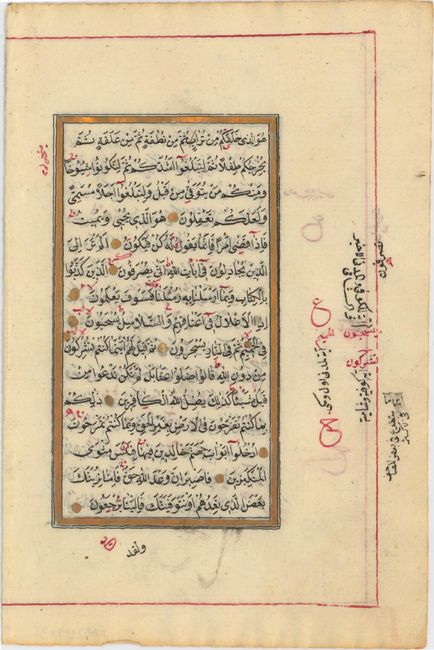 هُوَ الَّذِي خَلَقَكُمْ مِنْ تُرَابٍ ثُمَّ مِنْ نُطْفَةٍ ثُمَّ مِنْ عَلَقَةٍ ثُمَّ
يُخْرِجُكُمْ طِفْلًا ثُمَّ لِتَبْلُغُوا أَشُدَّكُمْ ثُمَّ لِتَكُونُوا شُيُوخًا
وَمِنْكُمْ مَنْ يُتَوَفَّى مِنْ قَبْلُ وَلِتَبْلُغُوا أَجَلًا مُسَمًّى
وَلَعَلَّكُمْ تَعْقِلُونَ هُوَ الَّذِي يُحْيِي وَيُمِيتُ
فَإِذَا قَضَى أَمْرًا فَإِنَّمَا يَقُولُ لَهُ كُنْ فَيَكُونُ أَلَمْ تَرَ إِلَى
الَّذِينَ يُجَادِلُونَ فِي آيَاتِ اللَّهِ أَنَّى يُصْرَفُونَ الَّذِينَ كَذَّبُوا
بِالْكِتَابِ وَبِمَا أَرْسَلْنَا بِهِ رُسُلَنَا فَسَوْفَ يَعْلَمُونَ
إِذِ الْأَغْلَالُ فِي أَعْنَاقِهِمْ وَالسَّلَاسِلُ يُسْحَبُونَ
فِي الْحَمِيمِ ثُمَّ فِي النَّارِ يُسْجَرُونَ ثُمَّ قِيلَ لَهُمْ أَيْنَمَا كُنْتُمْ تُشْرِكُونَ
مِنْ دُونِ اللَّهِ قَالُوا ضَلُّوا عَنَّا بَلْ لَمْ نَكُنْ نَدْعُوا مِنْ
قَبْلُ شَيْئًا كَذَلِكَ يُضِلُّ اللَّهُ الْكَافِرِينَ ذَلِكُمْ
بِمَا كُنْتُمْ تَفْرَحُونَ فِي الْأَرْضِ بِغَيْرِ الْحَقِّ وَبِمَا كُنْتُمْ تَمْرَحُونَ
ادْخُلُوا أَبْوَابَ جَهَنَّمَ خَالِدِينَ فِيهَا فَبِئْسَ مَثْوَى
الْمُتَكَبِّرِينَ فَاصْبِرْ إِنَّ وَعْدَ اللَّهِ حَقٌّ فَإِمَّا نُرِيَنَّكَ
بَعْضَ الَّذِي نَعِدُهُمْ أَوْ نَتَوَفَّيَنَّكَ فَإِلَيْنَا يُرْجَعُونَ
ولقد